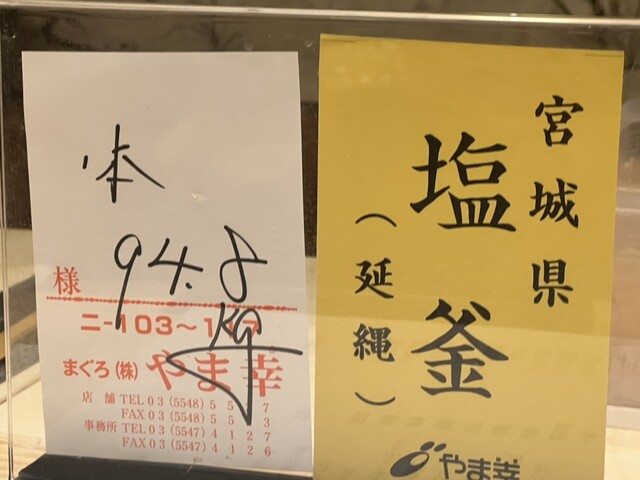 本
94.8
kg
様
ニ-103〜117
まぐろ(株) やま幸
店舗 TEL 03 (5548) 5 5 7
FAX 03 (5548) 5 5 3
事務所 TEL 03 (5547) 4 1 2 7
FAX 03 (5547) 4 1 2 6
宮城県
塩釜
(延縄)
やま幸